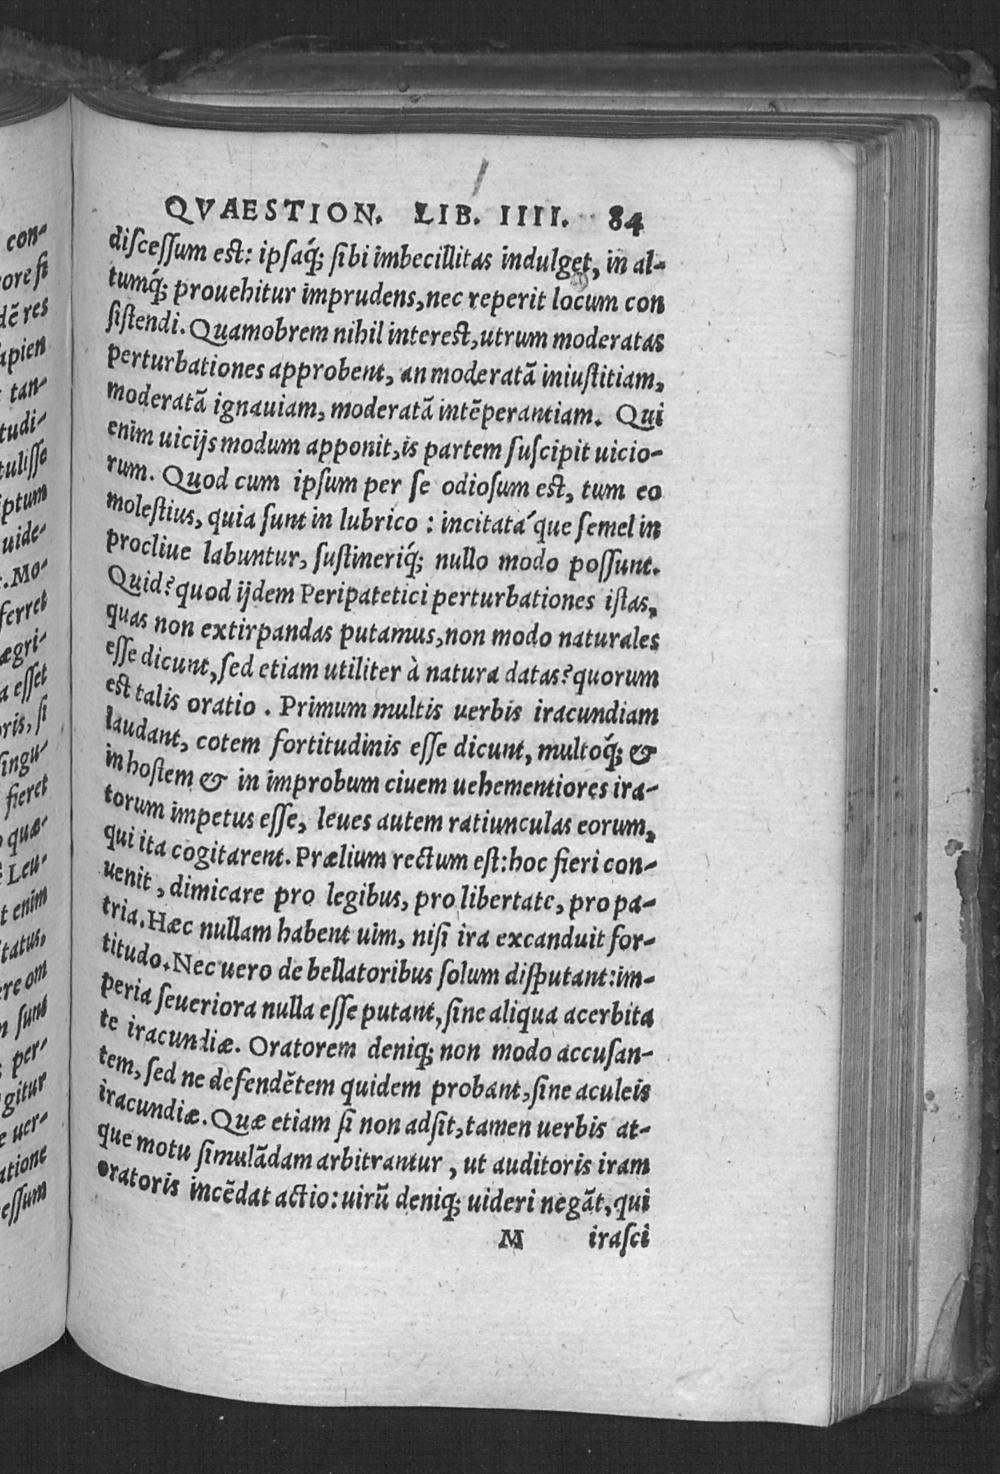 QVAESTION. LIB. IIII. 84
diſceſſum est: ipſaq́; ſibi imbecillitas indulget, in al-
tumq́; prouehitur imprudens, nec reperit locum con
ſiſtendi. Quamobrem nihil interest, utrum moderatas
perturbationes approbent, an moderatā iniuſtitiam,
moderatā ignauiam, moderatā intēperantiam. Qui
enim uicijs modum apponit, is partem ſuſcipit uicio-
rum. Quod cum ipſum per ſe odioſum est, tum eo
moleſtius, quia ſunt in lubrico : incitata´que ſemel in
procliue labuntur, ſuſtineriq́; nullo modo poſſunt.
Quid? quod ijdem Peripatetici perturbationes iſtas,
quas non extirpandas putamus, non modo naturales
eſſe dicunt, ſed etiam utiliter à natura datas? quorum
est talis oratio . Primum multis uerbis iracundiam
laudant, cotem fortitudinis eſſe dicunt, multoq́; &
in hoſtem & in improbum ciuem uehementiores ira-
torum impetus eſſe, leues autem ratiunculas eorum,
qui ita cogitarent. Prælium rectum est: hoc fieri con-
uenit, dimicare pro legibus, pro libertate, pro pa-
tria. Hæc nullam habent uim, niſi ira excanduit for-
titudo. Nec uero de bellatoribus ſolum diſputant: im-
peria ſeueriora nulla eſſe putant, ſine aliqua acerbita
te iracundiæ. Oratorem deniq; non modo accuſan-
tem, ſed ne defendētem quidem probant, ſine aculeis
iracundiæ. Quæ etiam ſi non adſit, tamen uerbis at-
que motu ſimulādam arbitrantur, ut auditoris iram
oratoris incēdat actio: uirū deniq; uideri negāt, qui
M iraſci
con-
ore ſi
dē res
apien
tan-
tudi-
tuliſſe
iptum
uide-
. Mo-
ferret
ægri-
a eſſet
oris, ſi
ſingu-
fieret
quæ-
Leu-
t enim
tatus,
ere om
n ſunt
per-
gitur
e uer-
atione
eſſum